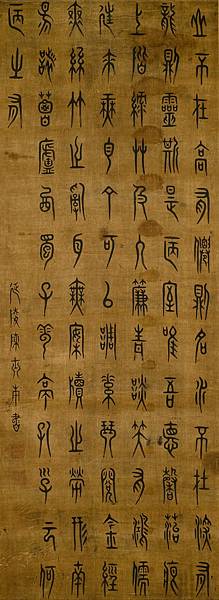 山不在高有僊則名水不在深有
龍則靈斯是陋室唯吾德馨苔痕
上階綠艸色入簾青談笑有鴻儒
往來無白丁可以調素琴閱金經
無絲竹之亂耳無案牘之勞形南
陽諸葛廬西蜀子雲亭孔子云何
陋之有
延陵陳書